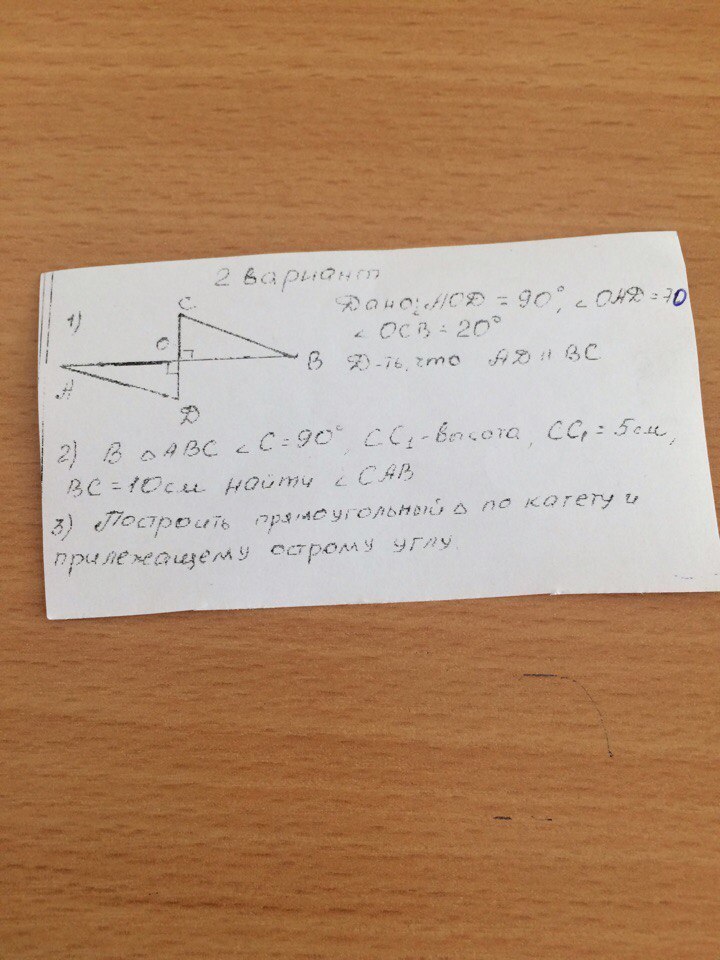 2 вариант
1)
C
O
A
B
D
Дано: AOD = 90°, ∠OAD = 70
∠OCB = 20°
Д-ть, что AD ∥ BC
2) В △ABC ∠C = 90°, CC₁ - высота, CC₁ = 5 см,
BC = 10 см найти ∠CAB
3) Построить прямоугольный △ по катету и
прилежащему острому углу.